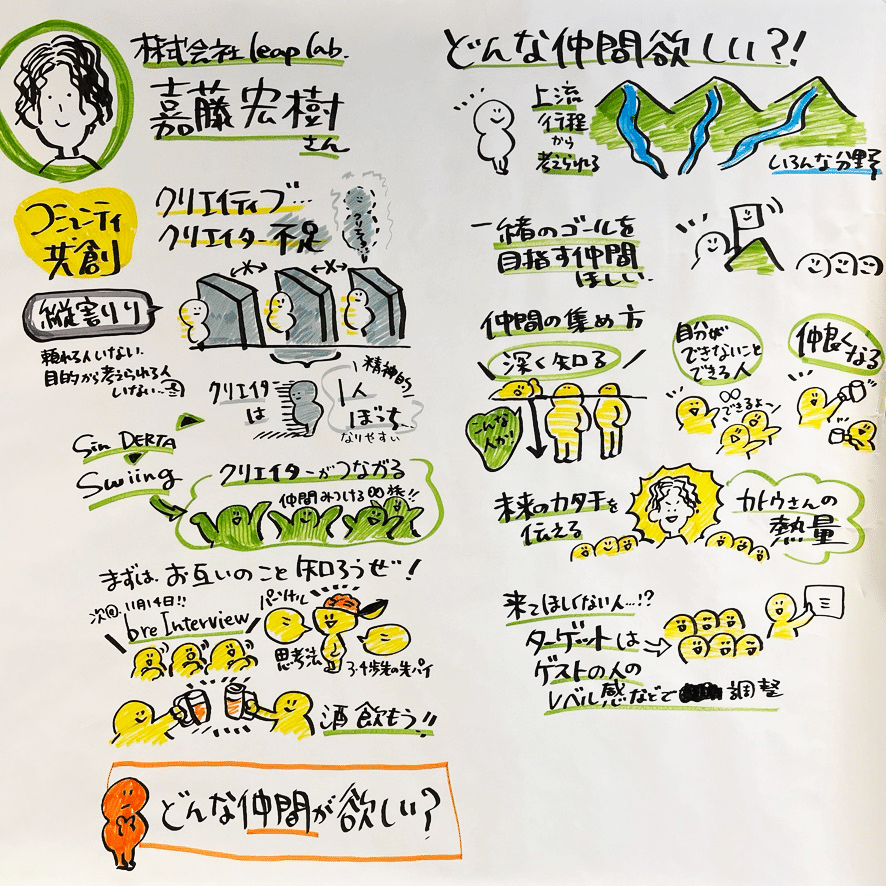 株式会社 leap lab.
嘉藤 宏樹
さん
コミュニティ
共創
クリエイティブ…
クリエイター不足
縦割りり
頼れる人いない
目的から考えられる人
いない…
クリエイター
は
精神的
1人
ぼっち
なりやすい
Sin DERTA
Swiing
クリエイターがつながる
仲間みつける旅!!
まずは、お互いのこと知ろうぜ!
次回、11月14日!!
bre Interview
思考法
3・4歩先の先パイ
酒飲もう!!
どんな仲間が欲しい?
どんな仲間欲しい?!
上流
行程
から
考えられる
いろんな分野
一緒のゴールを
目指す仲間
ほしい
仲間の集め方
深く知る
こんな
人か!
自分が
できないこと
できる人
できるよ〜
仲良くなる
未来のカタチを
伝える
カトウさんの
熱量
来てほしくない人…!?
ターゲットは
ゲストの人の
レベル感などで 調整